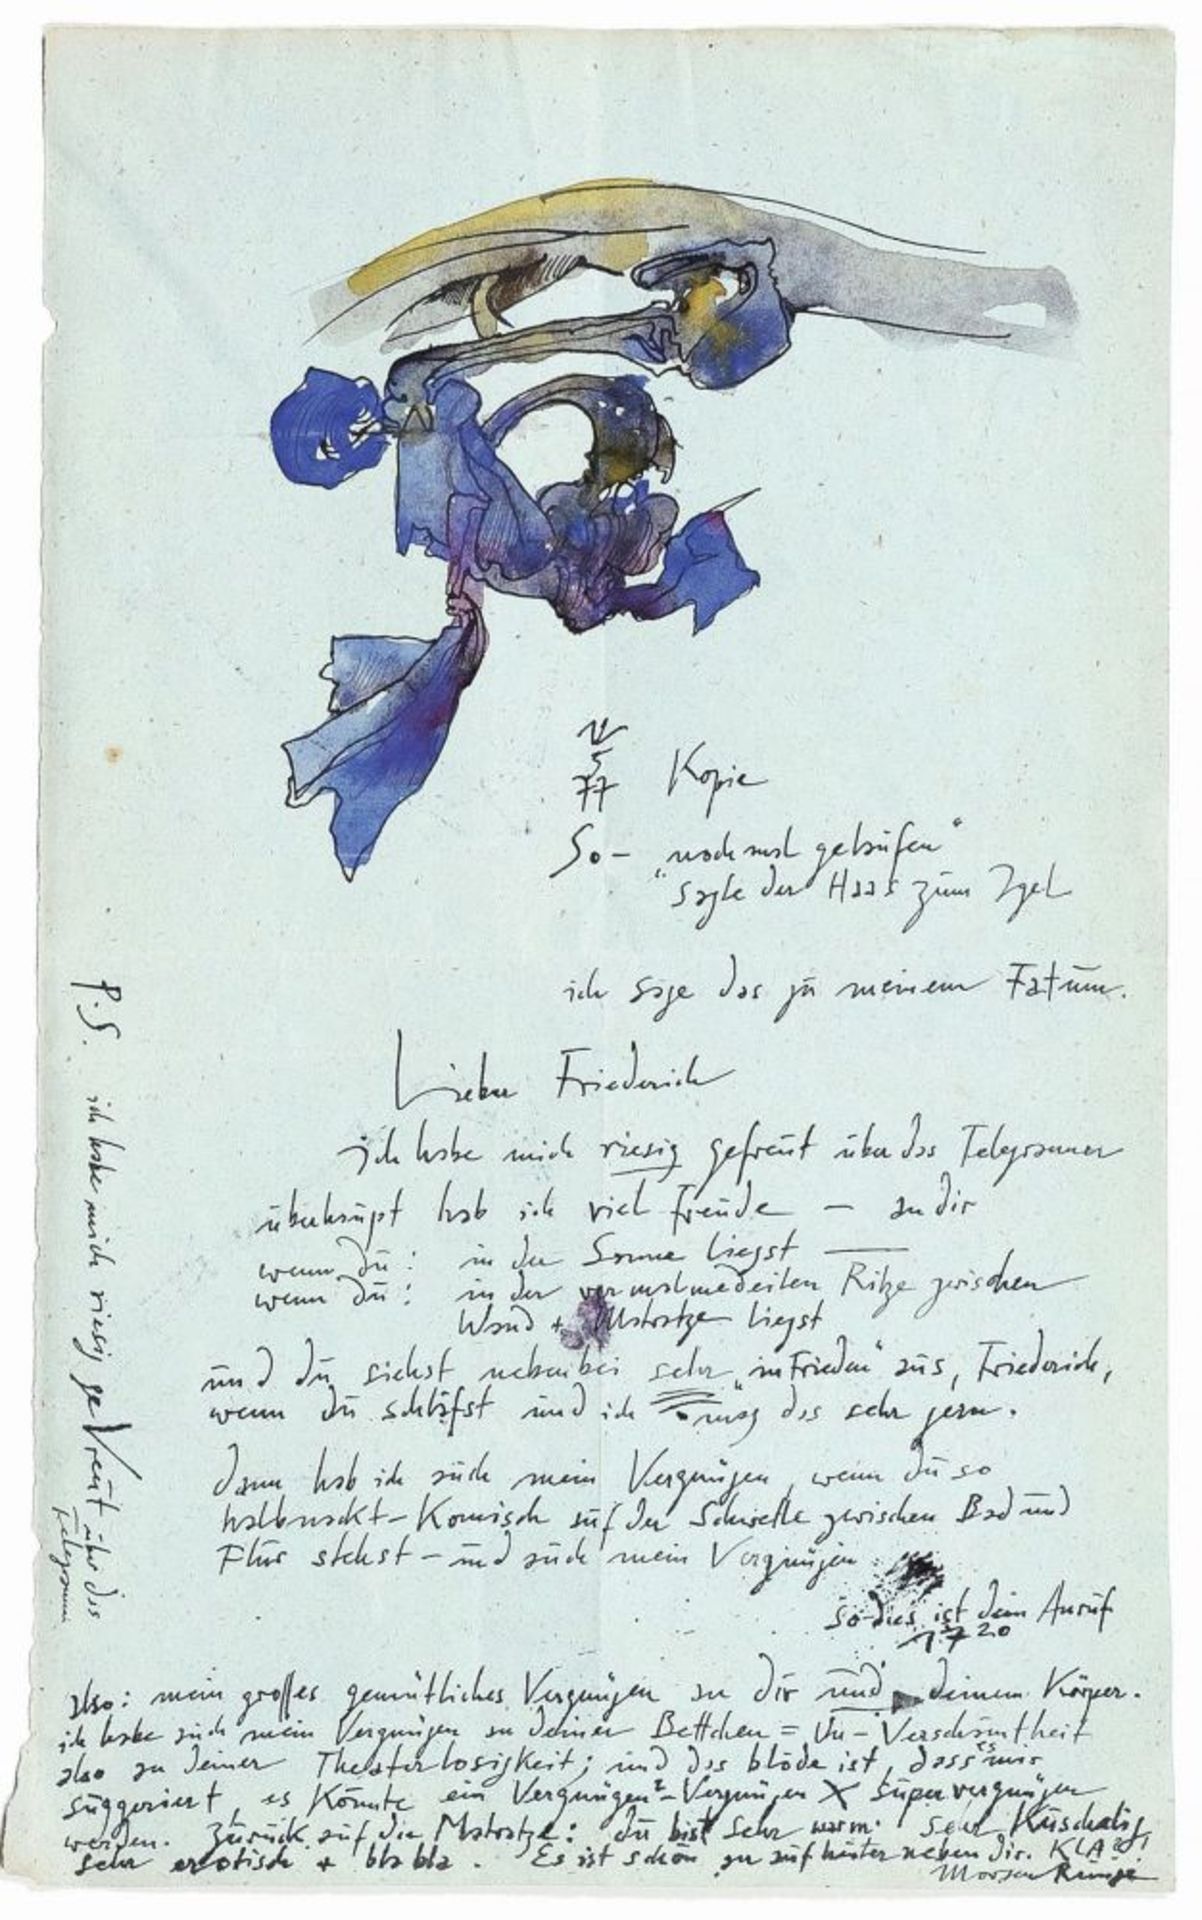 5
77 Kopie
So – „noch mal gelaufen“
sagte der Haas zum Igel
ich sage das zu meinem Fatum.
Lieber Friederich
ich habe mich riesig gefreut über das Telegramm
überhaupt hab ich viel Freude – an dir
wenn du: in der Sonne liegst —
wenn du: in der Ritze zwischen
Wand + Matratze liegst
und du siehst nebenbei sehr „in Frieden“ aus, Friederich,
wenn du schläfst und ich mag das sehr gern.
dann hab ich auch mein Vergnügen, wenn du so
halbnackt-komisch auf der Schwelle zwischen Bad und
Flur stehst – und auch mein Vergnügen
So – dies ist dein Anruf
17 20
also: mein großes gemütliches Vergnügen an dir und deinem Körper.
ich habe auch mein Vergnügen an deiner Bettchen = Un-Verschämtheit
also an deiner Theaterlosigkeit; und das blöde ist, dass es mir
suggeriert, es könnte ein Vergnügen²-Vergnügen X Supervergnügen
werden. Zurück auf die Matratze: du bist sehr warm. sehr kuschelig
sehr erotisch + bla bla. Es ist schön neben dir.
P.S. ich habe mich riesig gefreut über das
Telegramm